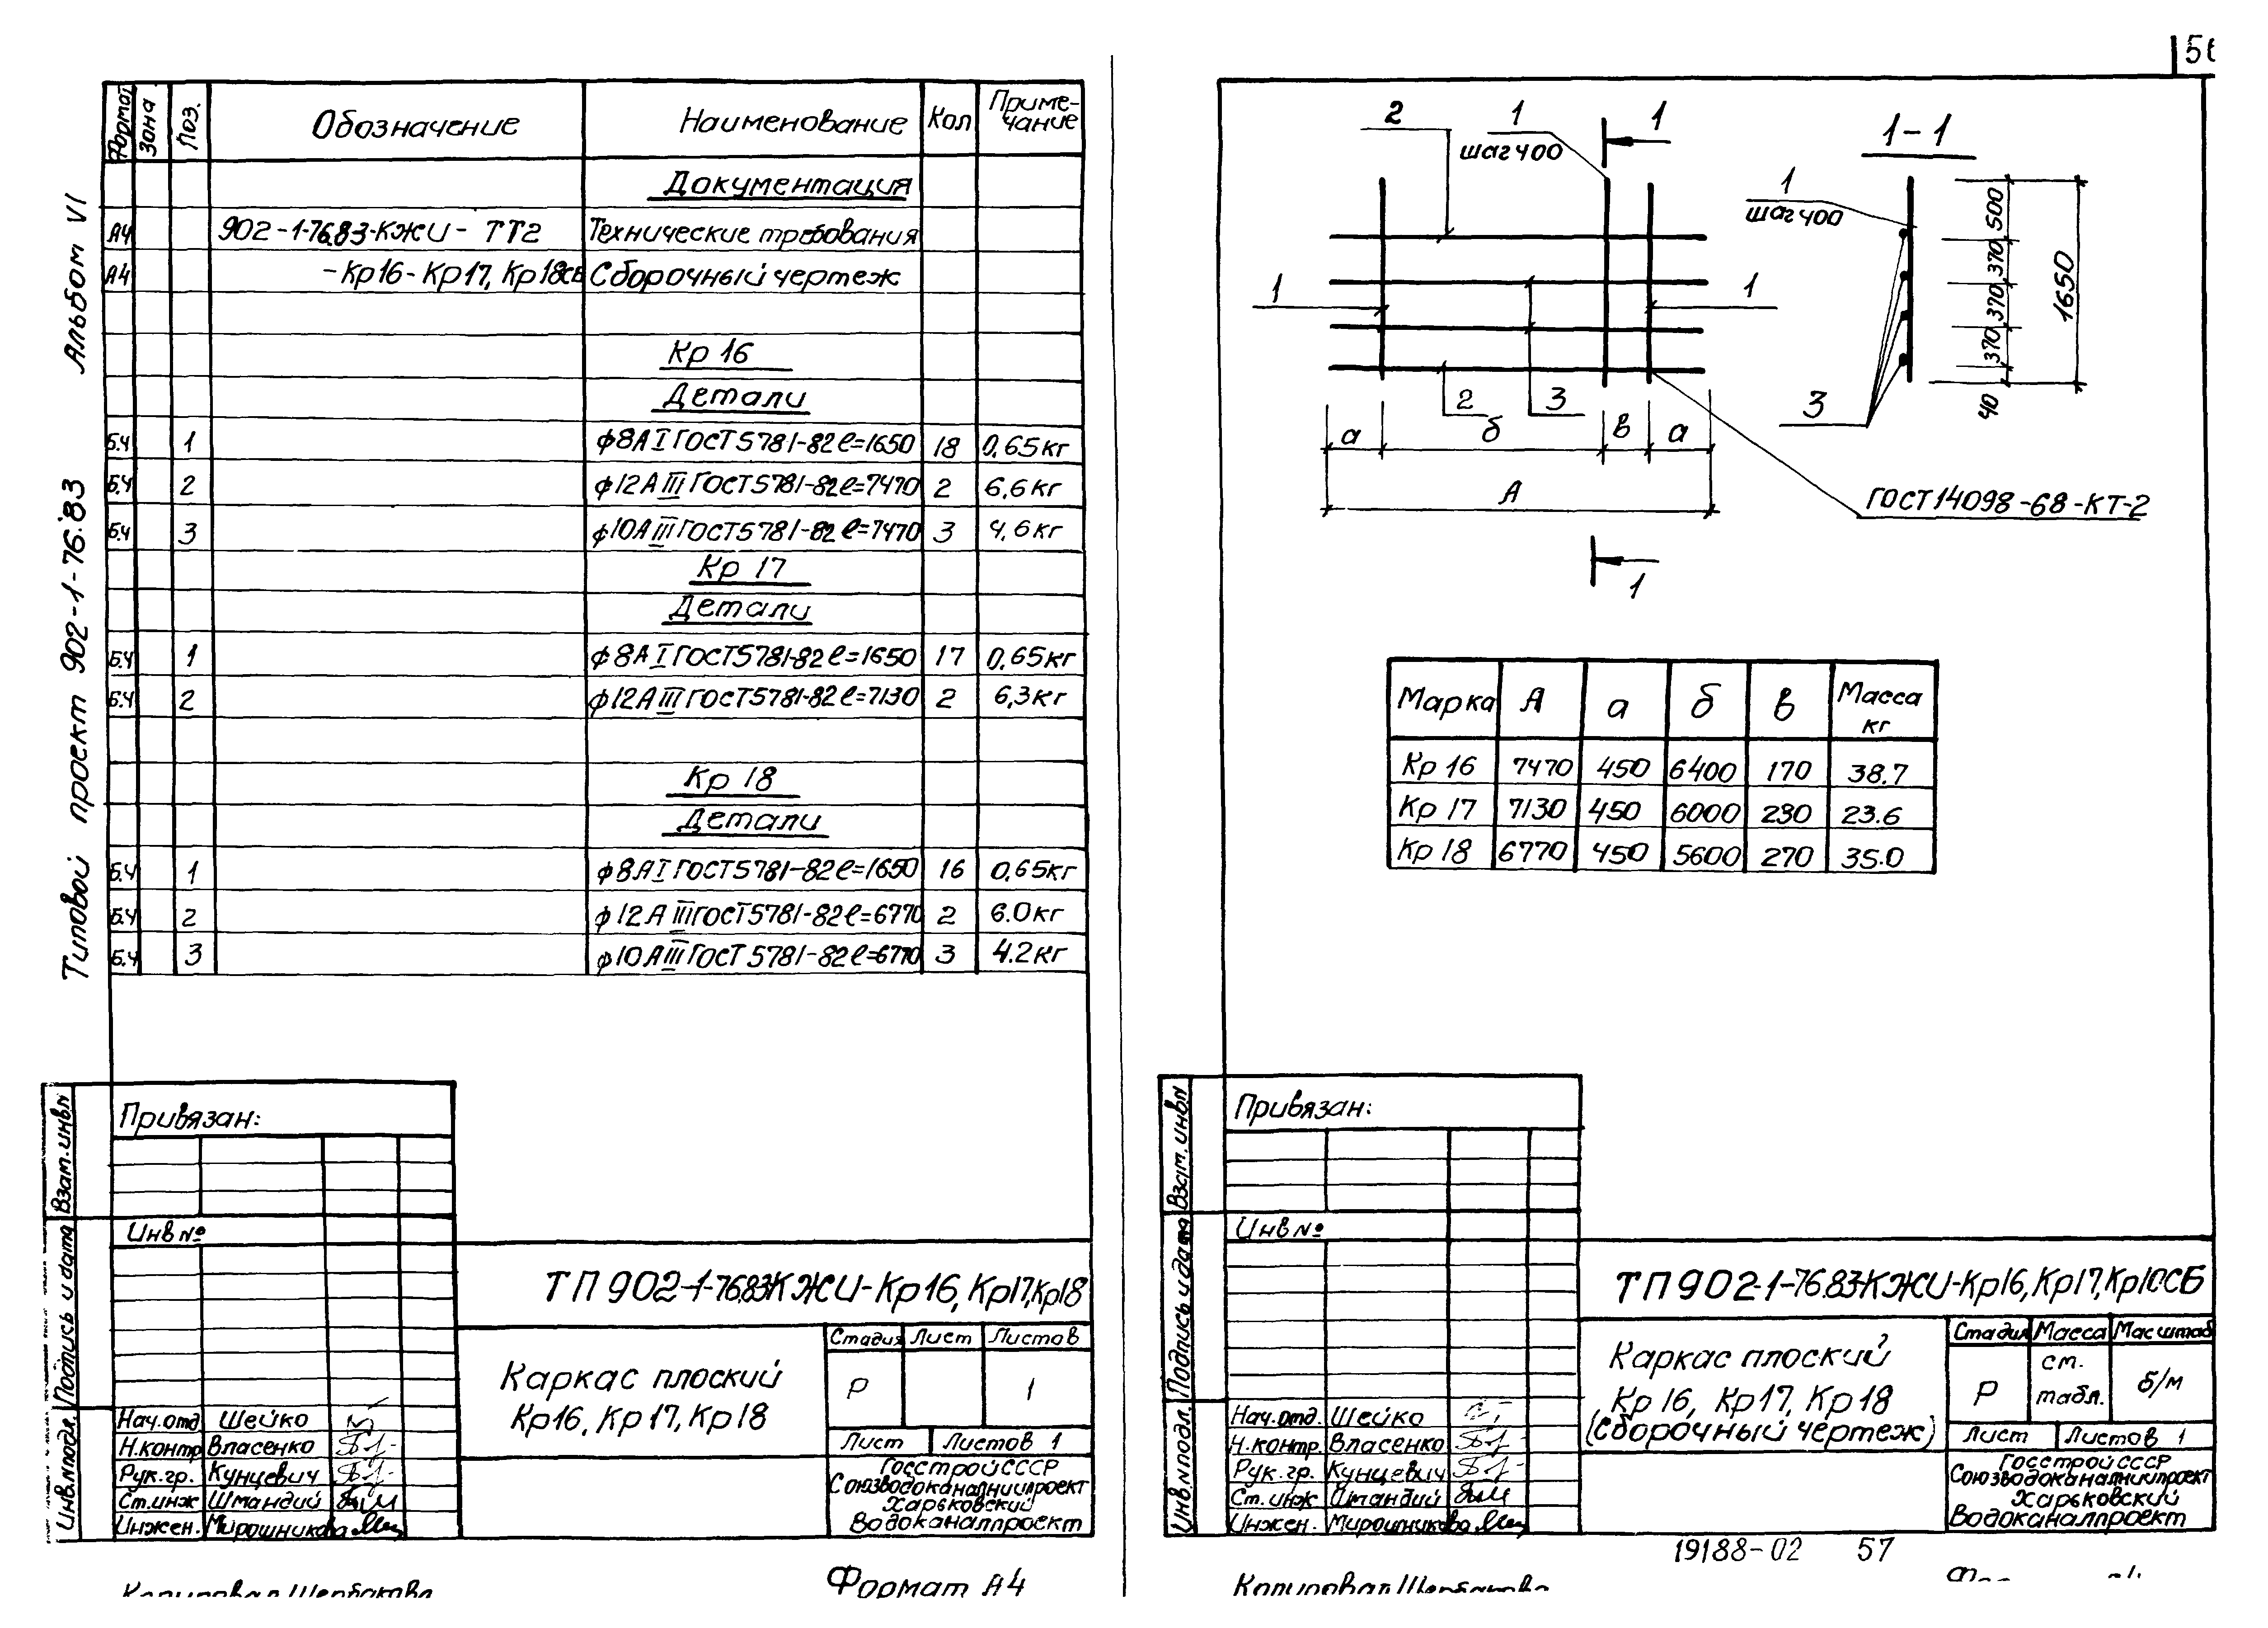 Альбом VI
Типовой проект 902-1-76.83
Формат Зона Поз. Обозначение Наименование Кол Приме-
чание
Документация
А4 902-1-76.83-КЖИ- ТТ2 Технические требования
А4 -Кр16-Кр17, Кр18СБ Сборочный чертеж
Кр 16
Детали
Б.Ч 1 ϕ8АI ГОСТ5781-82 ℓ=1650 18 0,65кг
Б.Ч 2 ϕ12АIII ГОСТ5781-82 ℓ=7470 2 6,6кг
Б.Ч 3 ϕ10АIII ГОСТ5781-82 ℓ=7470 3 4,6кг
Кр 17
Детали
Б.Ч 1 ϕ8АI ГОСТ5781-82 ℓ=1650 17 0,65кг
Б.Ч 2 ϕ12АIII ГОСТ5781-82 ℓ=7130 2 6,3кг
Кр 18
Детали
Б.Ч 1 ϕ8АI ГОСТ5781-82 ℓ=1650 16 0,65кг
Б.Ч 2 ϕ12АIII ГОСТ5781-82 ℓ=6770 2 6.0кг
Б.Ч 3 ϕ10АIII ГОСТ5781-82 ℓ=6770 3 4.2кг
Взам.инвN
Подпись и дата
Инв.Nподл.
Привязан:
Инв №
ТП 902-1-76.83КЖИ-Кр16, Кр17, Кр18
Каркас плоский
Кр16, Кр17, Кр18
Стадия Лист Листов
Р 1
Лист Листов 1
Нач.отд Шейко
Н.контр Власенко
Рук.гр. Кунцевич
Ст.инж Шмандий
Инжен. Мирошникова
Госстрой СССР
Союзводоканалниипроект
Харьковский
Водоканалпроект
Копировал Щербакова
Формат А4
56
2 1 1 1-1
шаг 400
1
шаг 400
1 1
2 3 3
а б в а
А
1
500
370
370
370
40
1650
ГОСТ14098-68-КТ-2
Марка А а б в Масса
кг
Кр 16 7470 450 6400 170 38.7
Кр 17 7130 450 6000 230 23.6
Кр 18 6770 450 5600 270 35.0
Взам.инвN
Подпись и дата
Инв.Nподл.
Привязан:
Инв №
ТП 902-1-76.83КЖИ-Кр16, Кр17, Кр10СБ
Каркас плоский
Кр 16, Кр17, Кр 18
(сборочный чертеж)
Стадия Масса Масштаб
Р см.
табл. б/м
Лист Листов 1
Нач.отд. Шейко
Н.контр. Власенко
Рук.гр. Кунцевич
Ст.инж Шмандий
Инжен. Мирошникова
Госстрой СССР
Союзводоканалниипроект
Харьковский
Водоканалпроект
19188-02 57
Копировал Щербакова